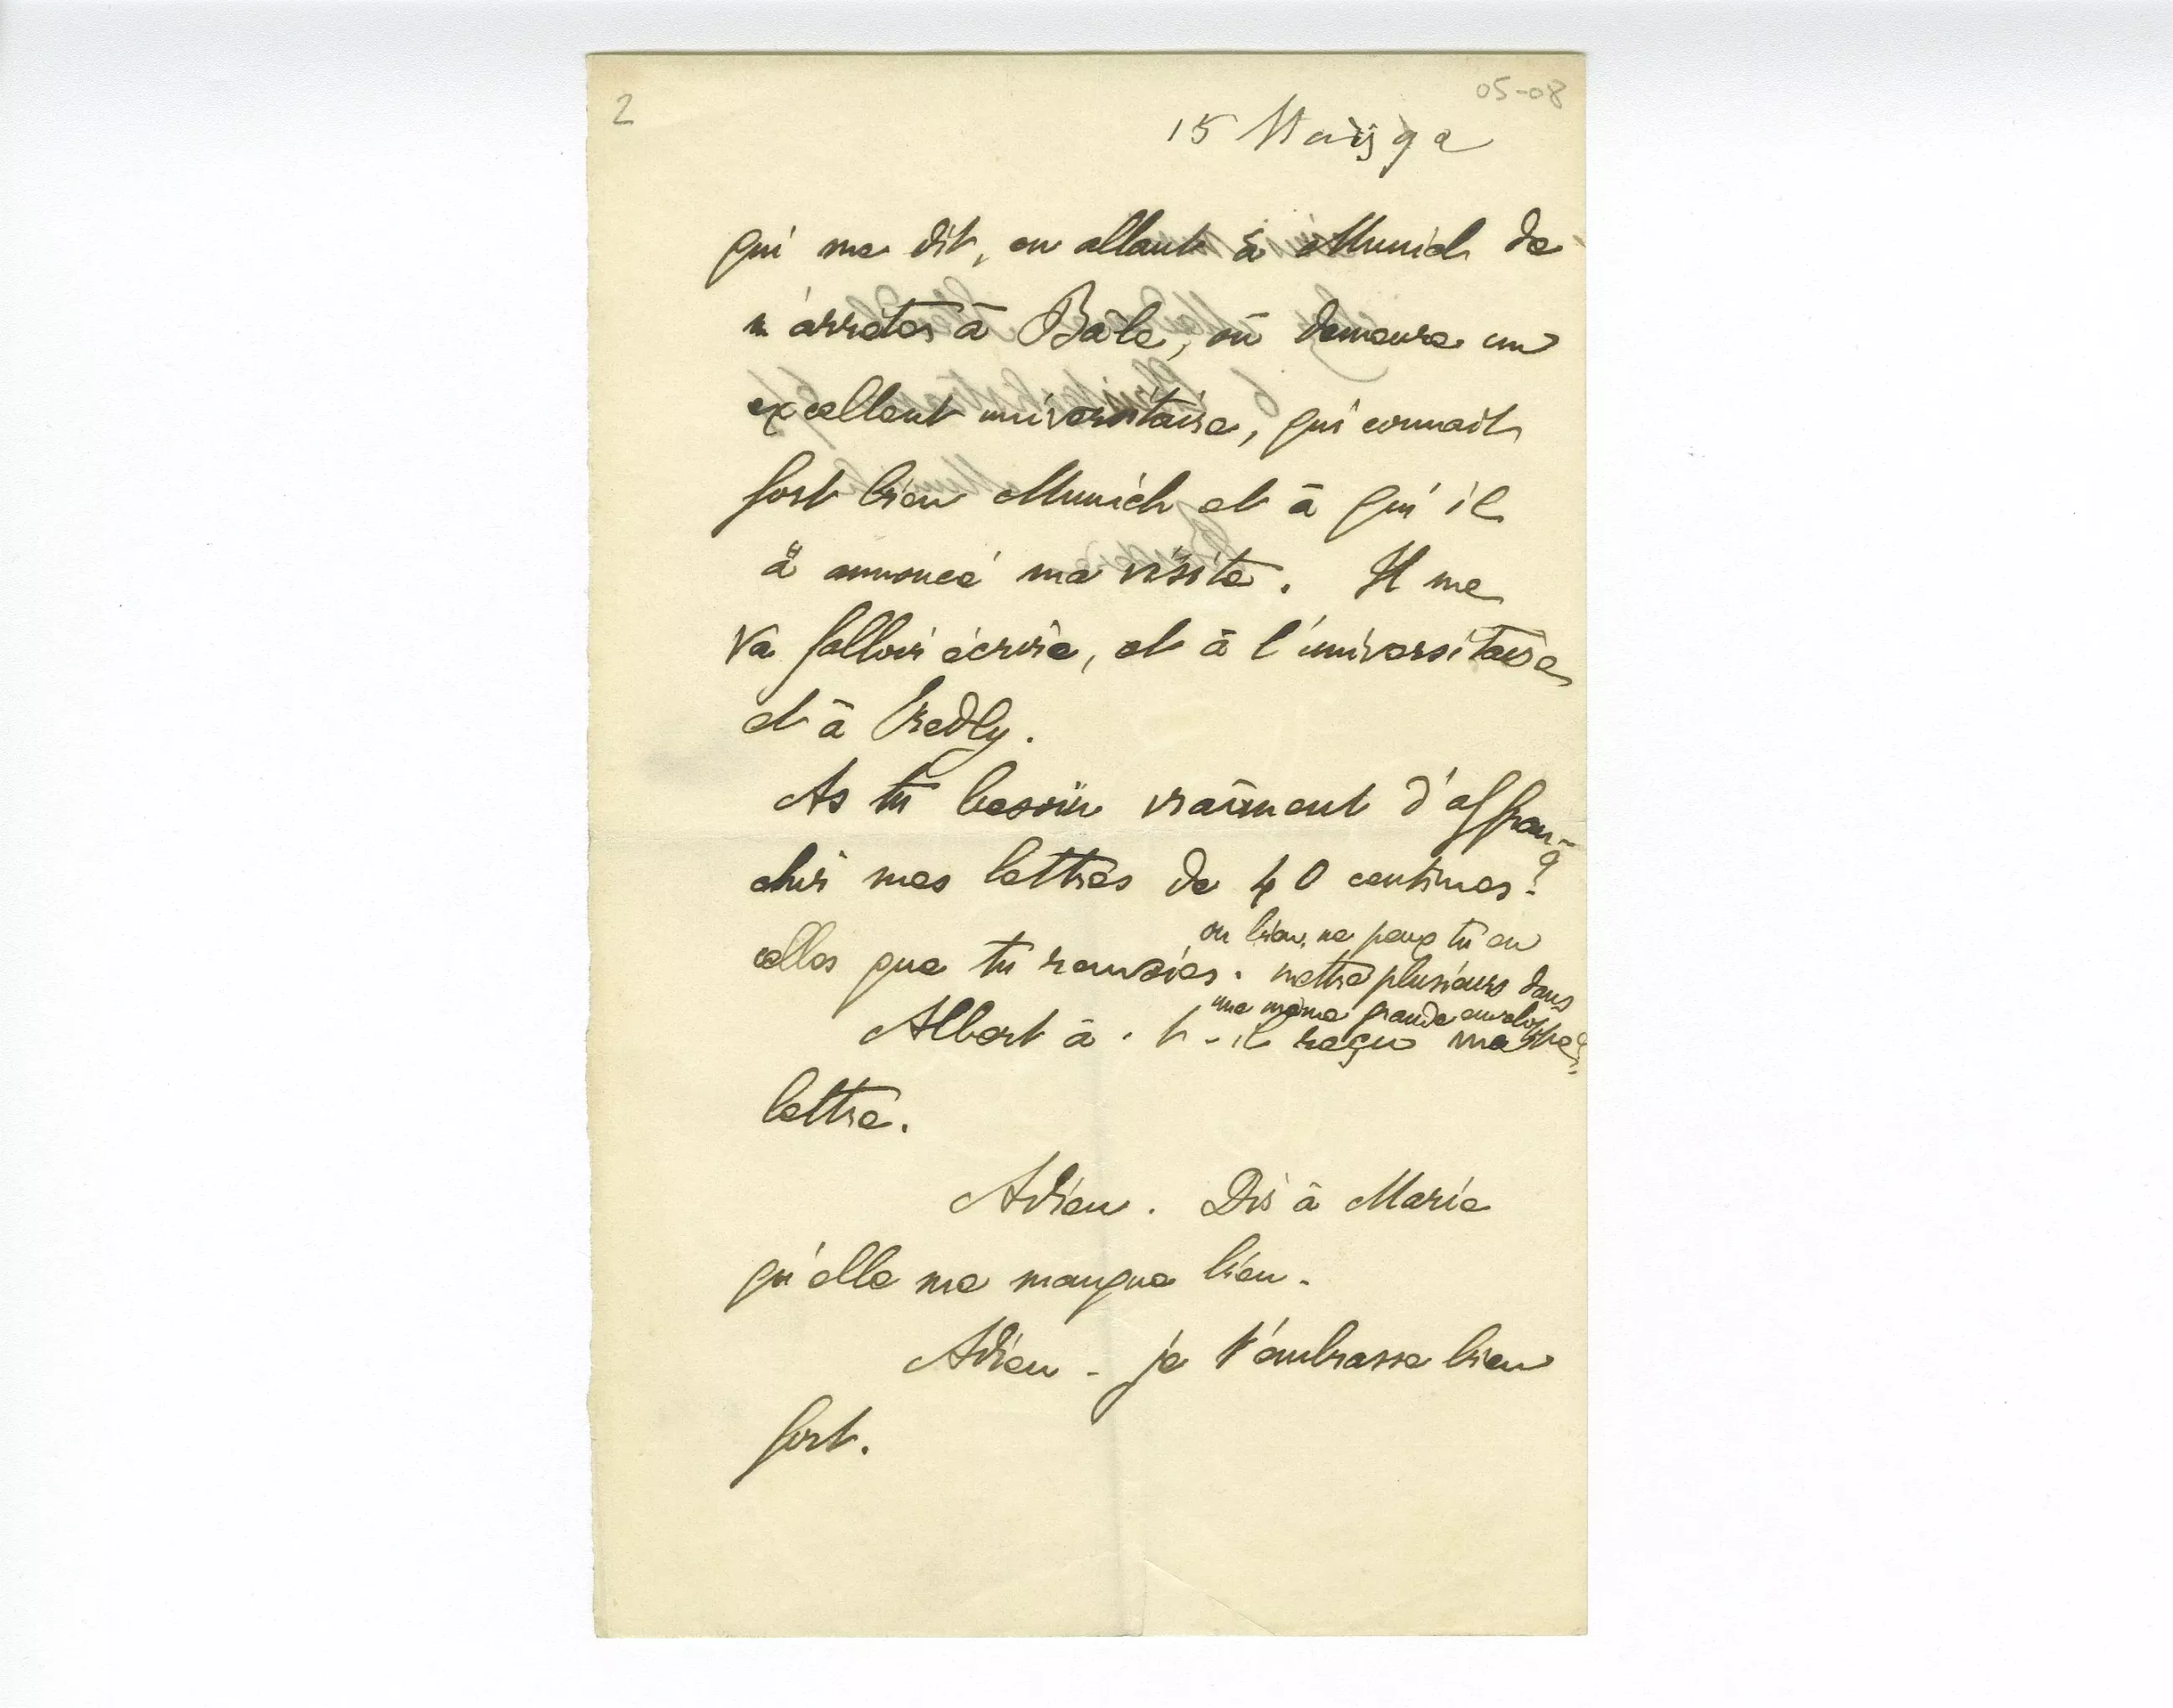 2
05-08
15 Mars 92
qui me dit, en allant à Munich de
m'arrêter à Bâle, où demeure un
excellent universitaire, qui connait
fort bien Munich et à qui il
a annoncé ma visite. Il me
va falloir écrire, et à l'universitaire
et à
As tu besoin vraiment d'affran-
chir mes lettres de 40 centimes?
celles que tu renvoies. ou bien, ne peux tu en
mettre plusieurs dans
une même grande enveloppe?
Albert à-t-il reçu ma
lettre.
Adieu. Dis à Marie
qu'elle me manque bien.
Adieu - je t'embrasse bien
fort.